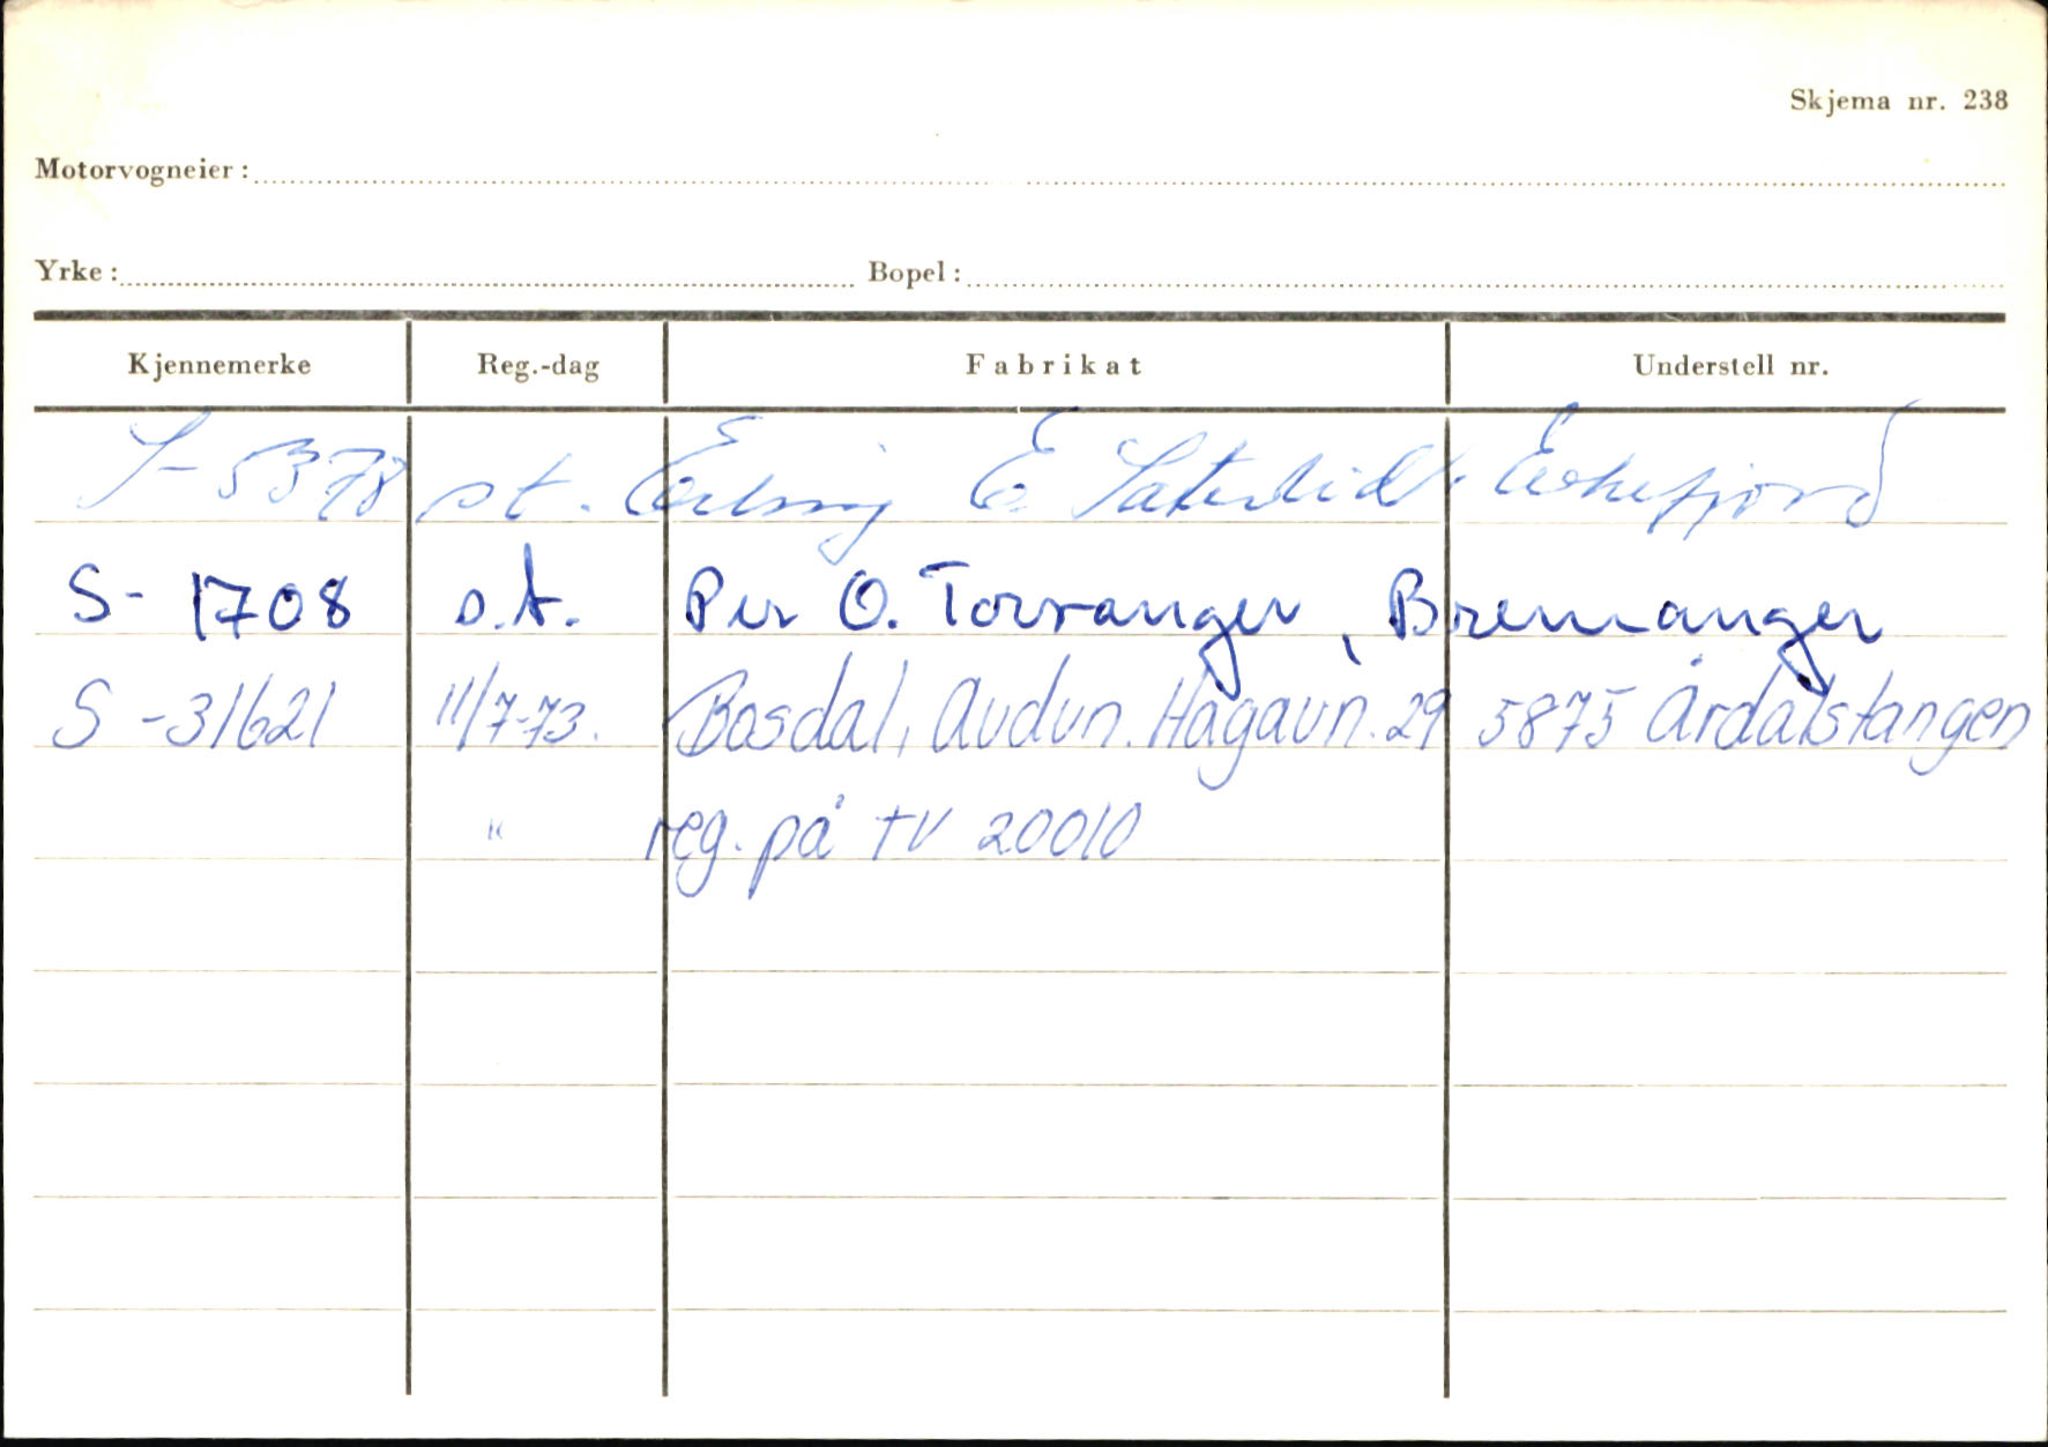 Skjema nr. 238
Motorvogneier:
Yrke: Bopel:
Kjennemerke Reg.-dag Fabrikat Understell nr.
S-5378 st. Erling E. Eikefjord
S- 1708 s.t. Per O. Torvanger, Bremanger
S-31621 11/7-73. Bosdal, Audun. Hagavn. 29 5875 Årdalstangen
" reg. på TV 20010